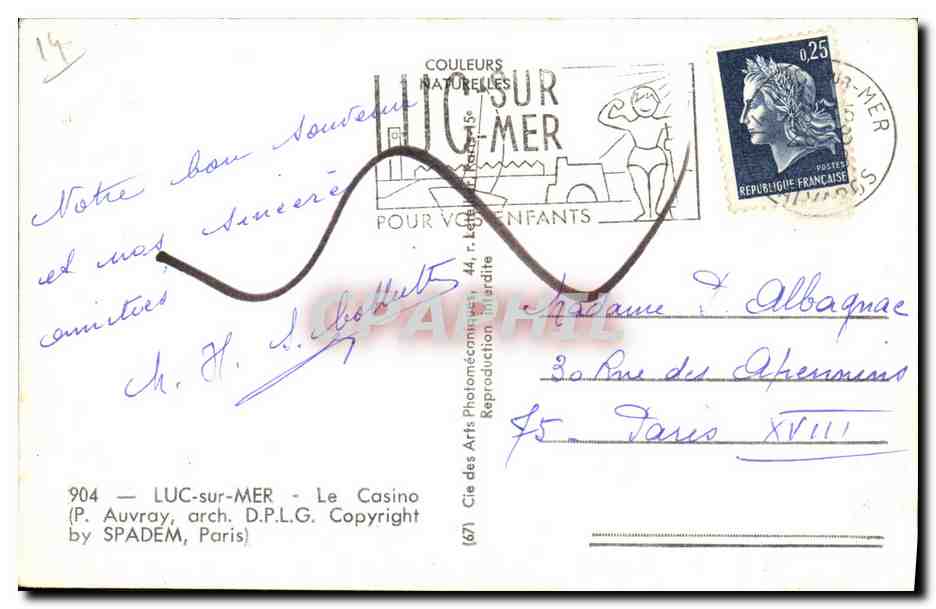 14
COULEURS
NATURELLES
LUC-SUR
-MER
POUR VOS ENFANTS
0,25
POSTES
REPUBLIQUE FRANÇAISE
-MER
CALVADOS
Notre bon souvenir
et nos sincères
amitiés
M. H.
Madame D Albagnac
30 Rue des Apennins
75 - Paris XVIII
904 — LUC-sur-MER - Le Casino
(P. Auvray, arch. D.P.L.G. Copyright
by SPADEM, Paris)
(67) Cie des Arts Photomécaniques, 44, r. Paris-15e
Reproduction interdite
CPAPHIL